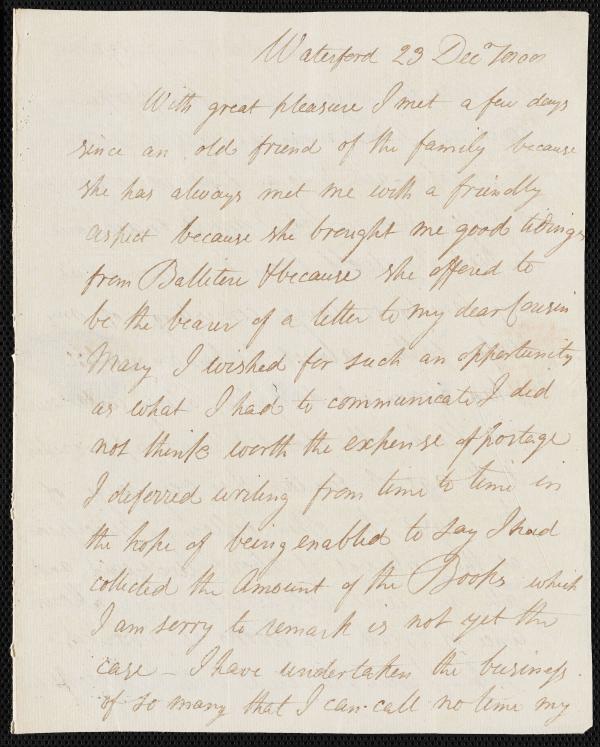 Waterford 23 Decr
With great pleasure I met a few days
since an old friend of the family because
she has always met me with a friendly
aspect because she brought me good tidings
from Ballitore & because she offered to
be the bearer of a letter to my dear Cousin
Mary I wished for such an opportunity
as what I had to communicate I did
not think worth the expense of postage
I deferred writing from time to time in
the hope of being enabled to say I had
collected the Amount of the Books which
I am sorry to remark is not yet the
case - I have undertaken the business
of so many that I can call no time my